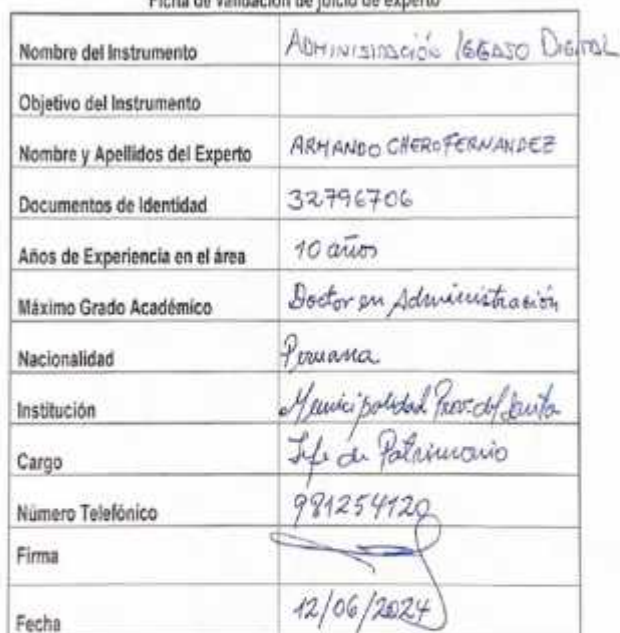 Ficha de validación de juicio de experto
Nombre del Instrumento ADMINISTRACIÓN LEGAJO DIGITAL
Objetivo del Instrumento
Nombre y Apellidos del Experto ARMANDO CHERO FERNANDEZ
Documentos de Identidad 32796706
Años de Experiencia en el área 10 años
Máximo Grado Académico Doctor en Administración
Nacionalidad Peruana
Institución Municipalidad Prov. del Santa
Cargo Jefe de Patrimonio
Número Telefónico 981254120
Firma
Fecha 12/06/2024